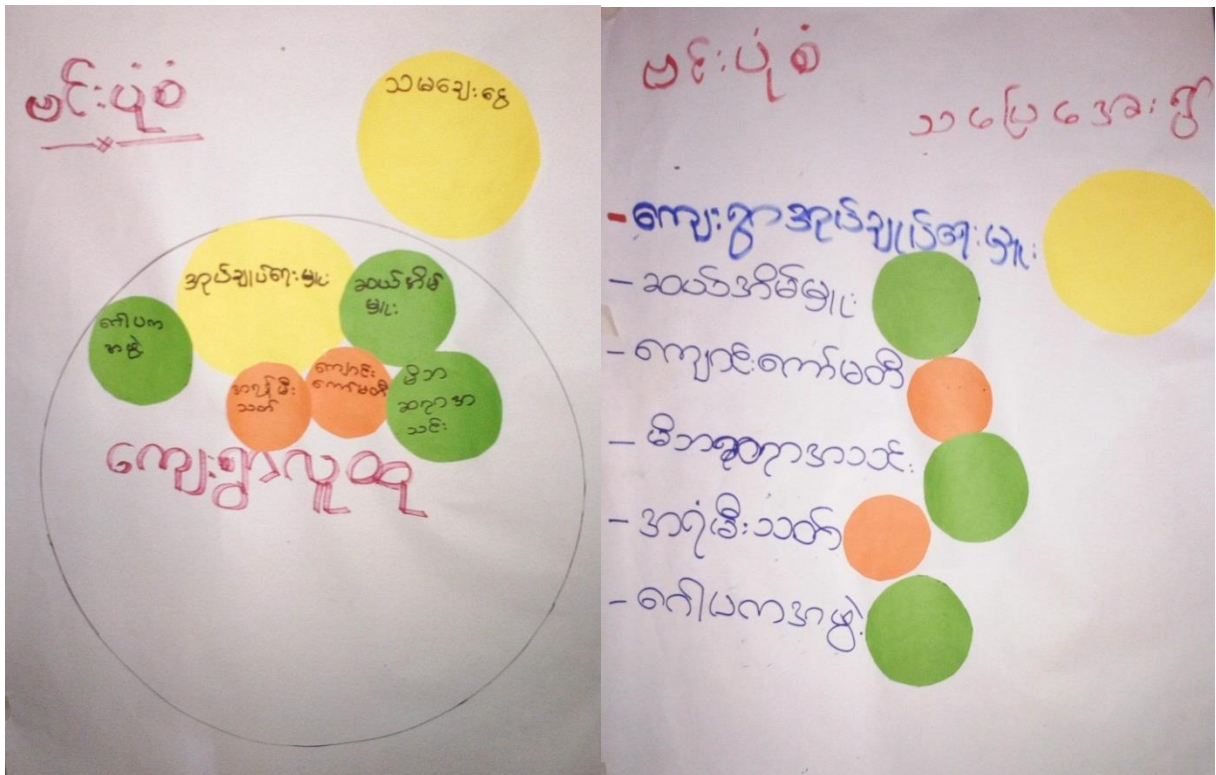 ဗင်းပုံစံ
သမချေးငွေ
အုပ်ချုပ်ရေးမှူး
ဆယ်အိမ်
မှူး
ဂေါပက
အဖွဲ့
အရံမီး
သတ်
ကျောင်း
ကော်မတီ
မိဘ
ဆရာအ
သင်း
ကျေးရွာလူထု
ဗင်းပုံစံ
သပြေအေးရွာ
- ကျေးရွာအုပ်ချုပ်ရေးမှူး
- ဆယ်အိမ်မှူး
- ကျောင်းကော်မတီ
- မိဘဆရာအသင်း
- အရံမီးသတ်
- ဂေါပကအဖွဲ့